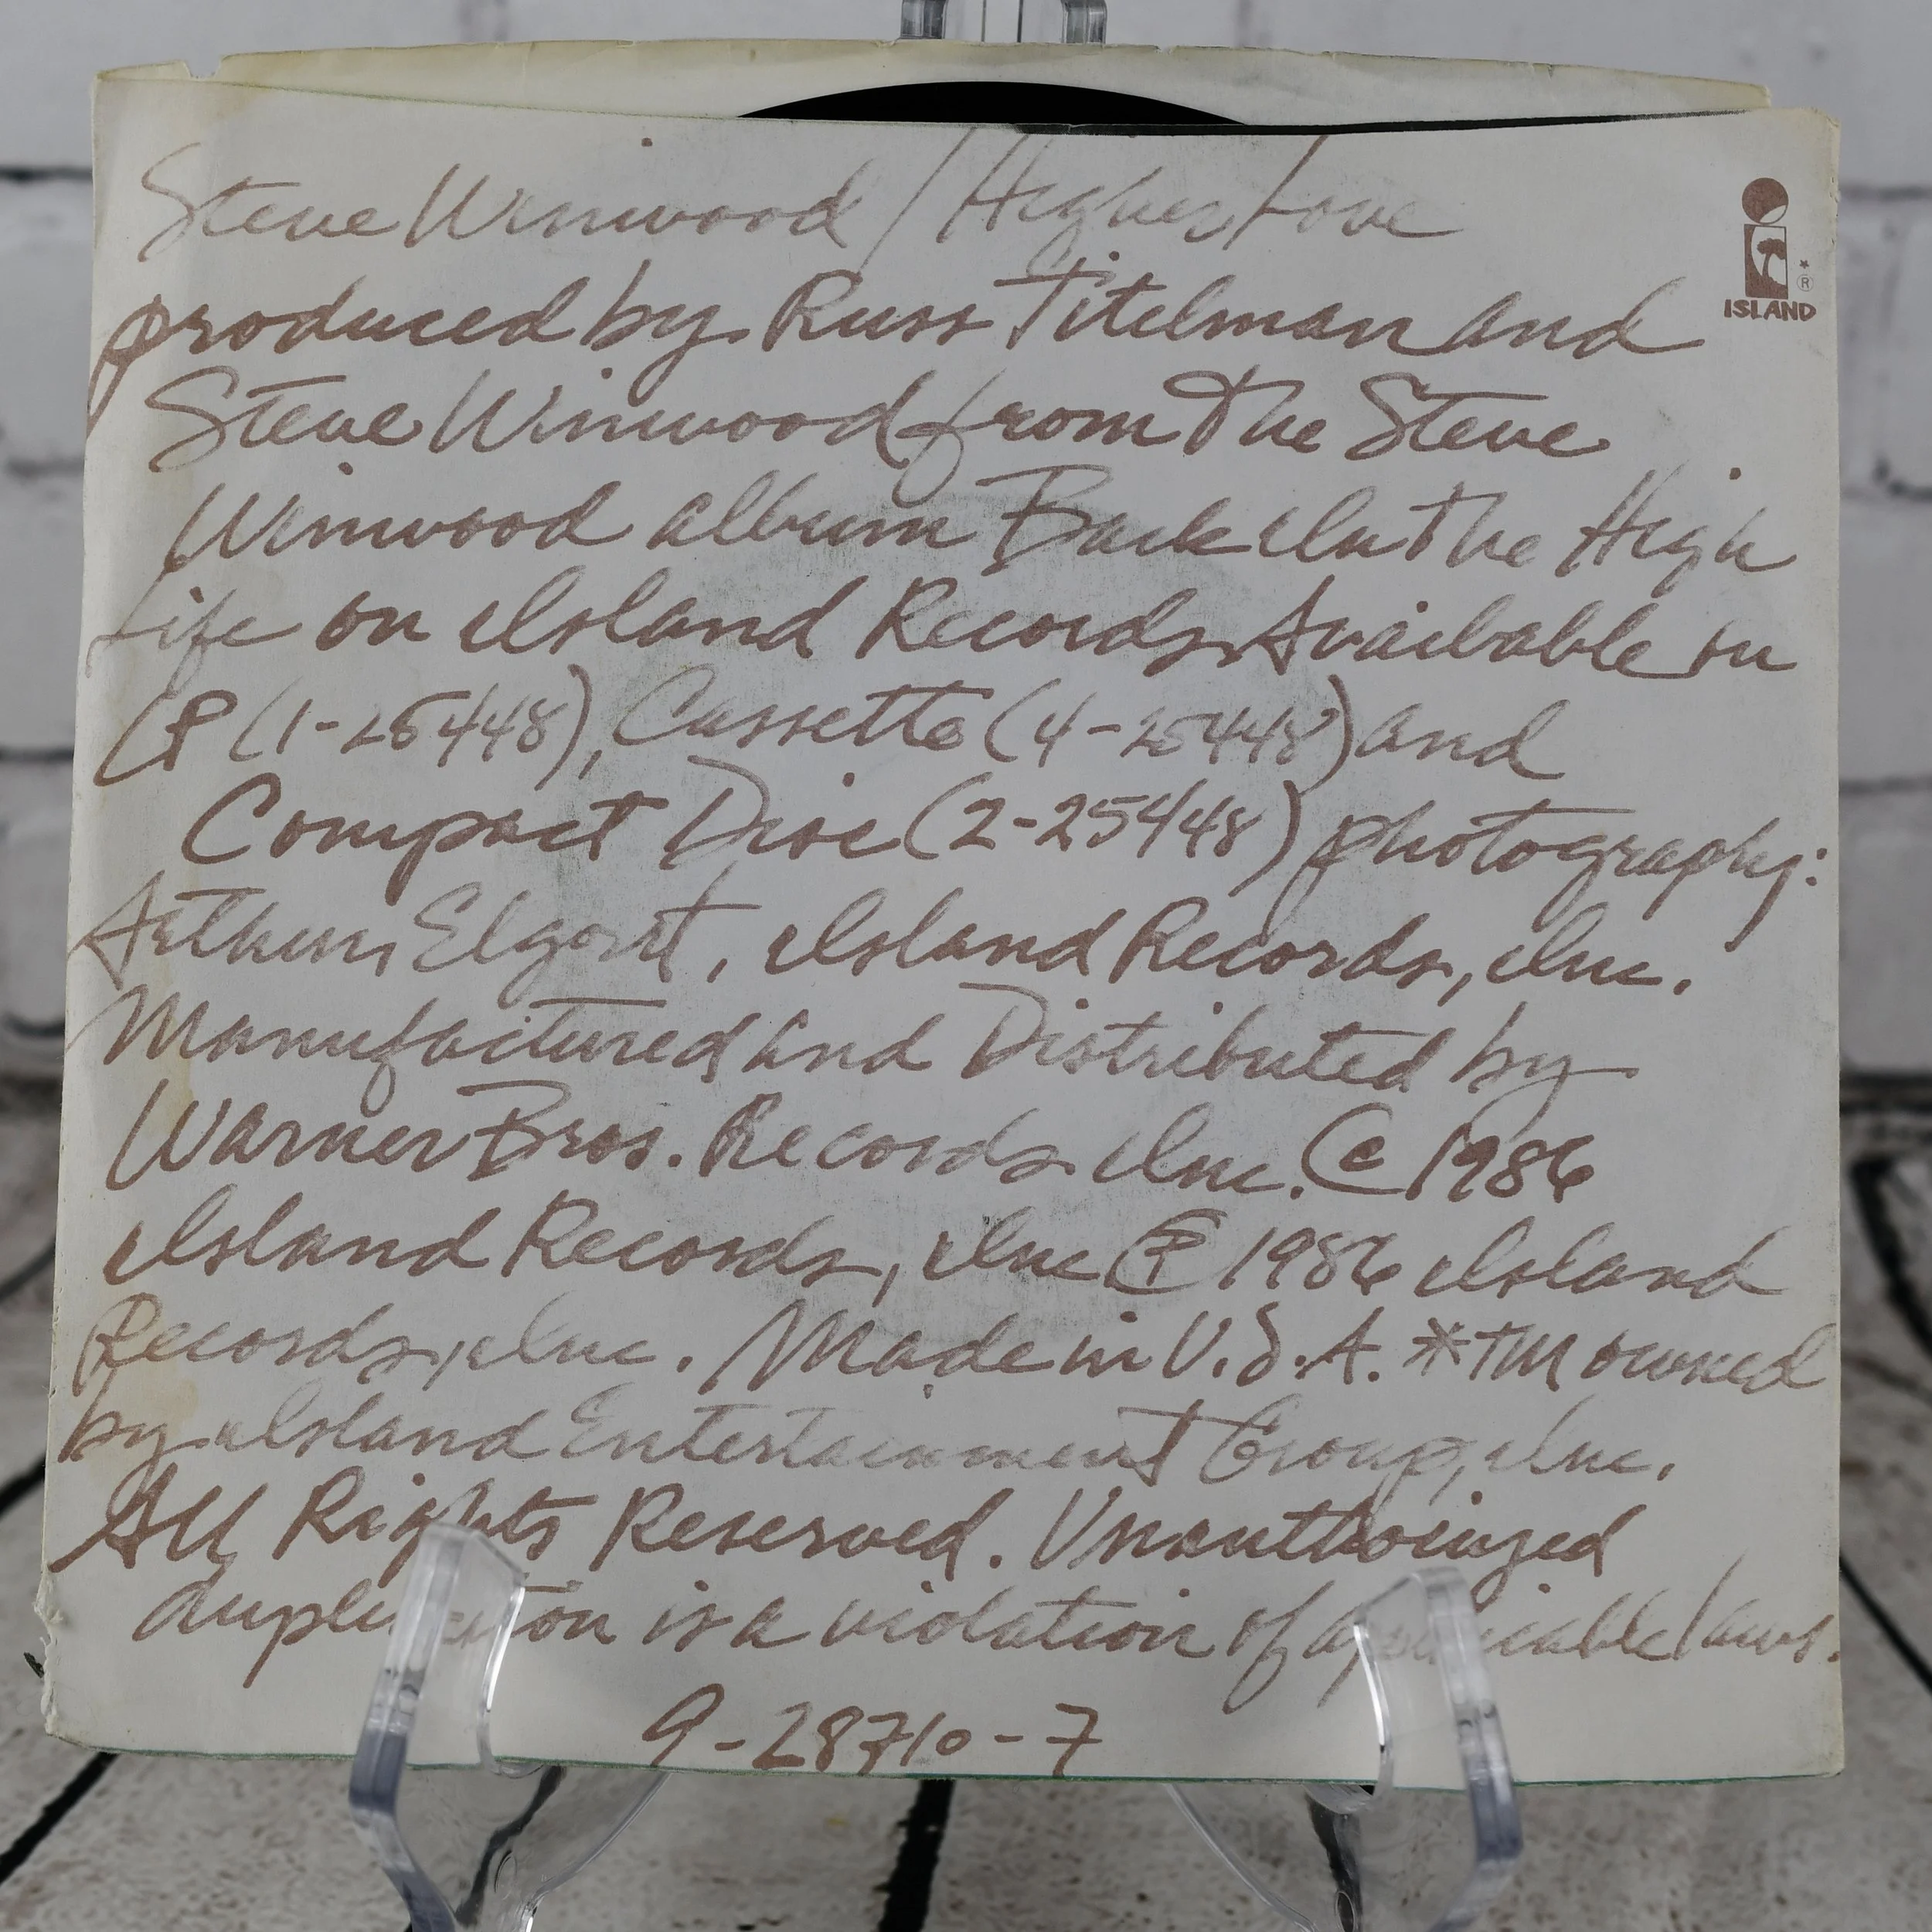 Steve Winwood / Higher Love
produced by Russ Titelman and
Steve Winwood from The Steve
Winwood album Back In The High
Life on Island Records Available on
LP (1-25448), Cassette (4-25448) and
Compact Disc (2-25448) photography:
Arthur Elgort, Island Records, Inc.
Manufactured and Distributed by
Warner Bros. Records Inc. © 1986
Island Records, Inc ℗ 1986 Island
Records, Inc. Made in U.S.A. *TM owned
by Island Entertainment Group, Inc.
All Rights Reserved. Unauthorized
duplication is a violation of applicable laws.
9-28710-7
* ®
ISLAND